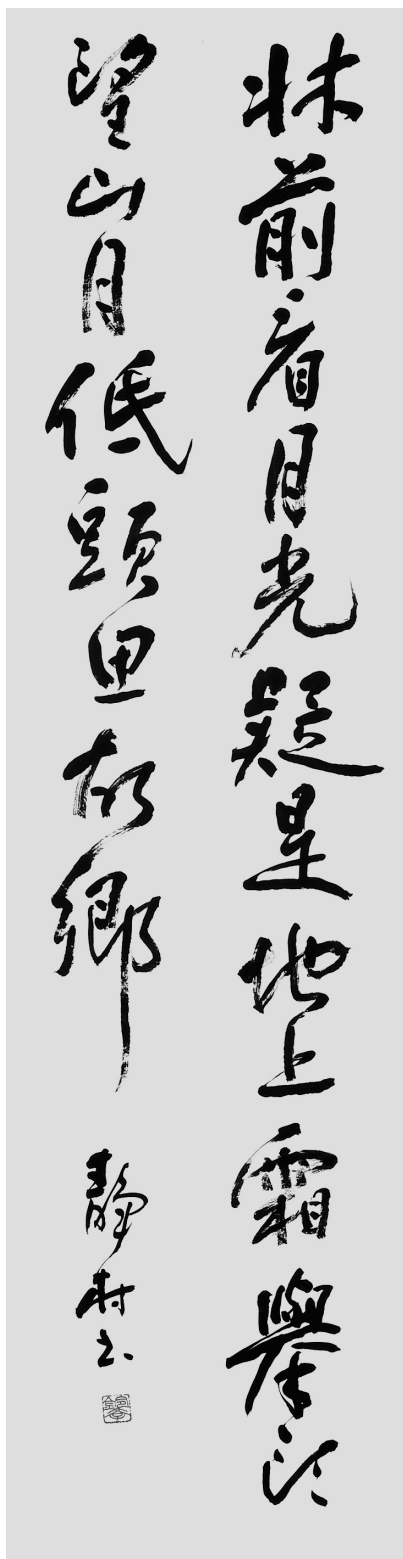 牀前看月光疑是地上霜舉頭
望山月低頭思故鄉
靜村書